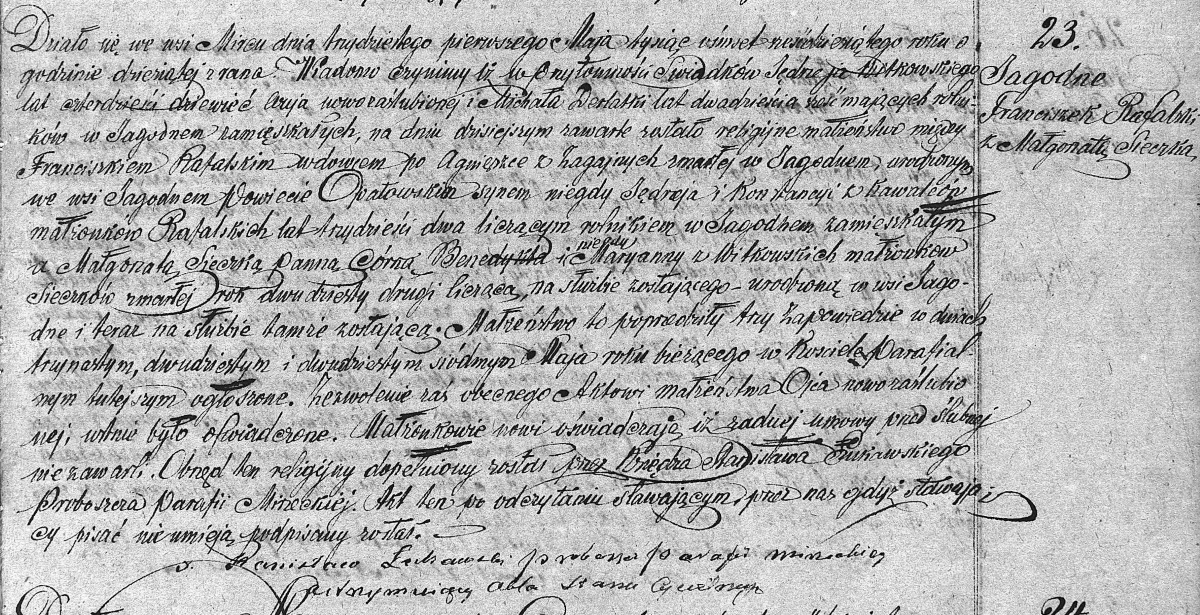 Działo się we wsi Mircu dnia trzydziestego pierwszego Maja tysiąc ośmset sześdziesiątego roku o
godzinie dziesiątej z rana. Wiadomo czynimy iż w przytomności Świadków Jędrzeja Witkowskiego
lat czterdzieści dziewięć wuja nowozaślubionej i Michała Derlatki lat dwadzieścia sześć mających rolni-
ków w Jagodnem zamieszkałych, na dniu dzisiejszym zawarte zostało religijne małżeństwo między
Franciszkiem Rafalskim wdowcem po Agnieszce z Zagajnych zmarłej w Jagodnem, urodzonym
we wsi Jagodnem Powiecie Opatowskim synem niegdy Jędrzeja i Konstancyi z Kawalców
małżonków Rafalskich lat trzydzieści dwa liczącym rolnikiem w Jagodnem zamieszkałym
a Małgorzatą Sieczką Panną Córką Benedykta i niegdy Maryanny z Witkowskich małżonków
Sieczków zmarłej rok dwudziesty drugi liczącą, na służbie zostającego - urodzoną w wsi Jago-
dne i teraz na służbie tamże zostającą. Małżeństwo to poprzedziły trzy Zapowiedzie w dniach
trzynastym, dwudziestym i dwudziestym siódmym Maja roku bieżącego w Kościele Parafial-
nym tutejszym ogłoszone. Zezwolenie zaś obecnego Aktowi małżeństwa Ojca nowozaślubio
nej, ustnie było oświadczone. Małżonkowie nowi oświadczają iż żadnej umowy przed ślubnej
nie zawarli. Obrzęd ten religijny dopełniony został przez Księdza Stanisława
Proboszcza Parafii Mireckiej. Akt ten po odczytaniu stawającym, przez nas gdyż stawają-
cy pisać nie umieją podpisany został.
Stanisław proboszcz Parafii mireckiej
utrzymujący akta stanu Cywilnego
23.
Jagodne
Franciszek Rafalski
z Małgorzatą Sieczka
24.